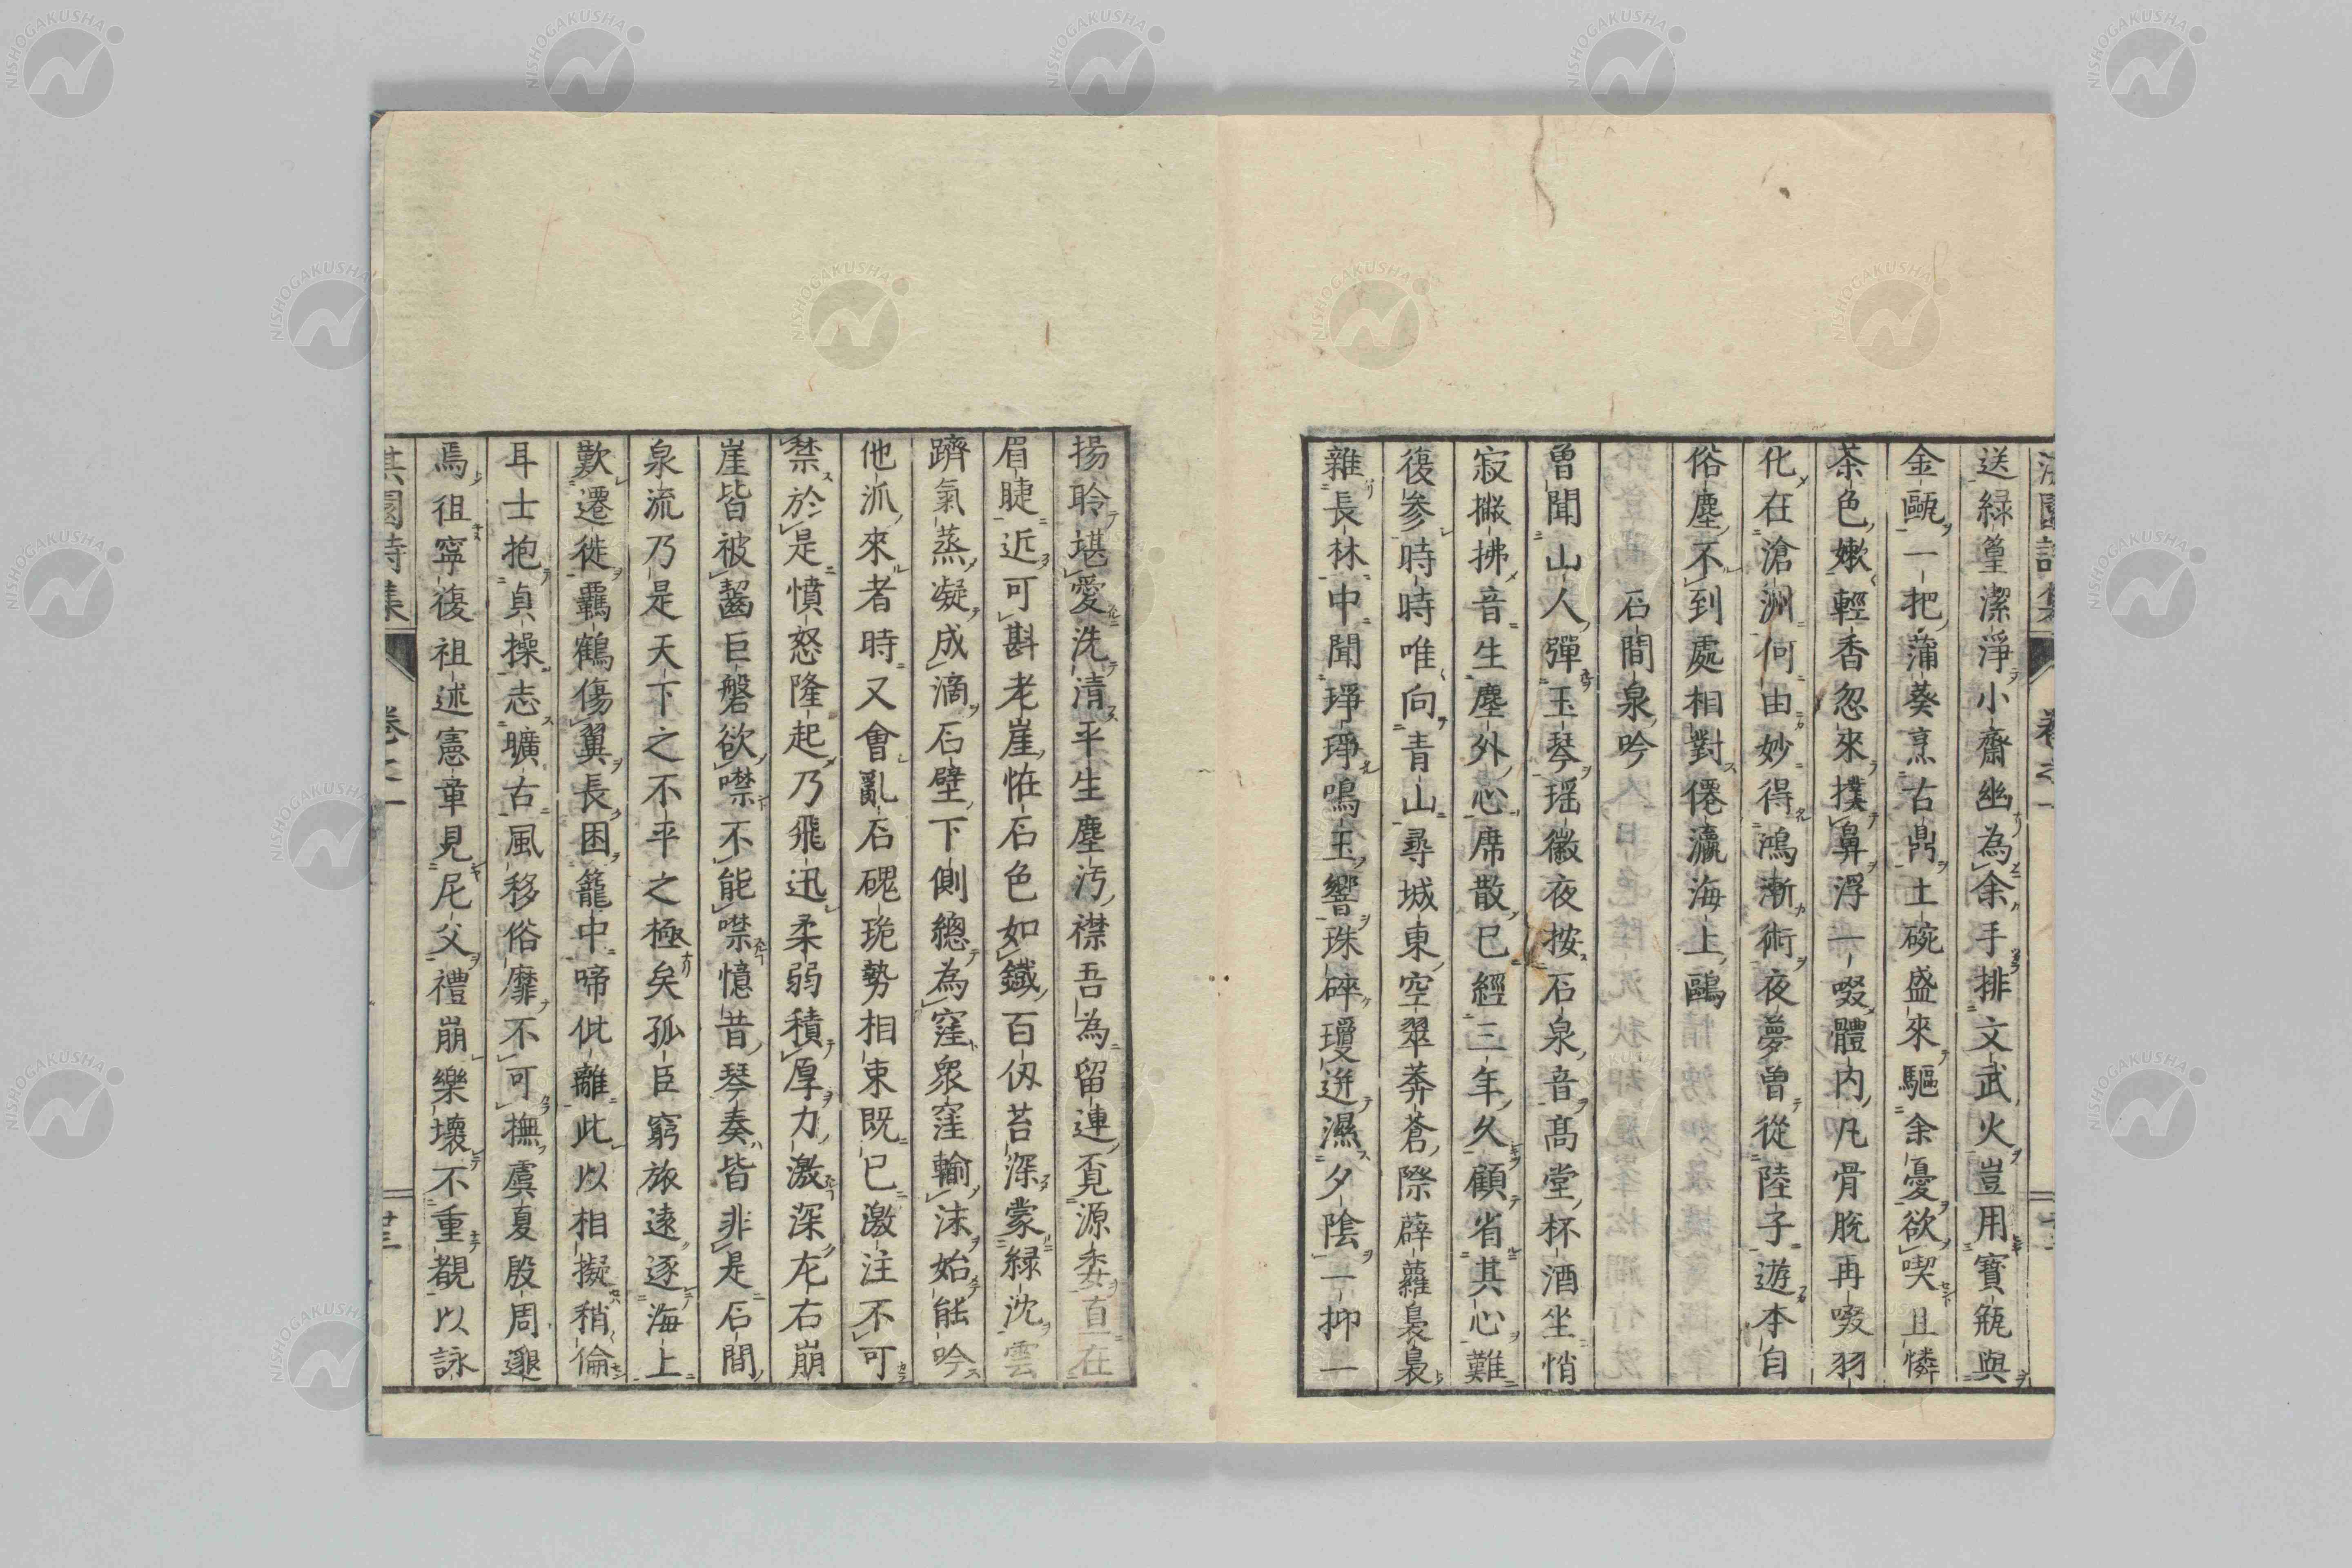 送緑篁潔淨小齋幽為余手排文武火豈用寳瓶與
金甌一把蒲葵烹古鼎土碗盛來驅余憂欲喫且憐
茶色嫰輕香忽來撲鼻浮一啜體内凡骨脫再啜羽
化在滄洲何由妙得鴻漸術夜夢曾從陸子遊本自
俗塵不到處相對僊瀛海上鷗
石間泉吟
曽聞山人彈玉琴瑶徽夜按石泉音髙堂杯酒坐悄
寂撇拂音生塵外心席散已經三年久顧省其心難
復参時時唯向青山尋城東空翠莽蒼際薜蘿裊裊
雜長林中聞琤琤鳴玉響珠碎瓊迸濕夕陰一抑一
揚聆堪愛洗清平生塵汚襟吾為留連覔源委直在
眉睫近可斟老崖恠石色如鐵百仭苔深蒙緑沈雲
躋氣蒸凝成滴石壁下側總為窪衆窪輸沫始能吟
他派來者時又會亂石磈硊勢相束既已激注不可
禁於是憤怒隆起乃飛迅柔弱積厚力激深左右崩
崖皆被齧巨磐欲噤不能噤憶昔琴奏皆非是石間
泉流乃是天下之不平之極矣孤臣窮旅逺逐海上
歎遷徙羈鶴傷翼長困籠中啼仳離此以相擬稍倫
耳士抱貞操志曠古風移俗靡不可撫虞夏殷周邈
焉徂寧復祖述憲章見尼父禮崩樂壞不重覩以詠
淇園詩集 卷之一 廿三